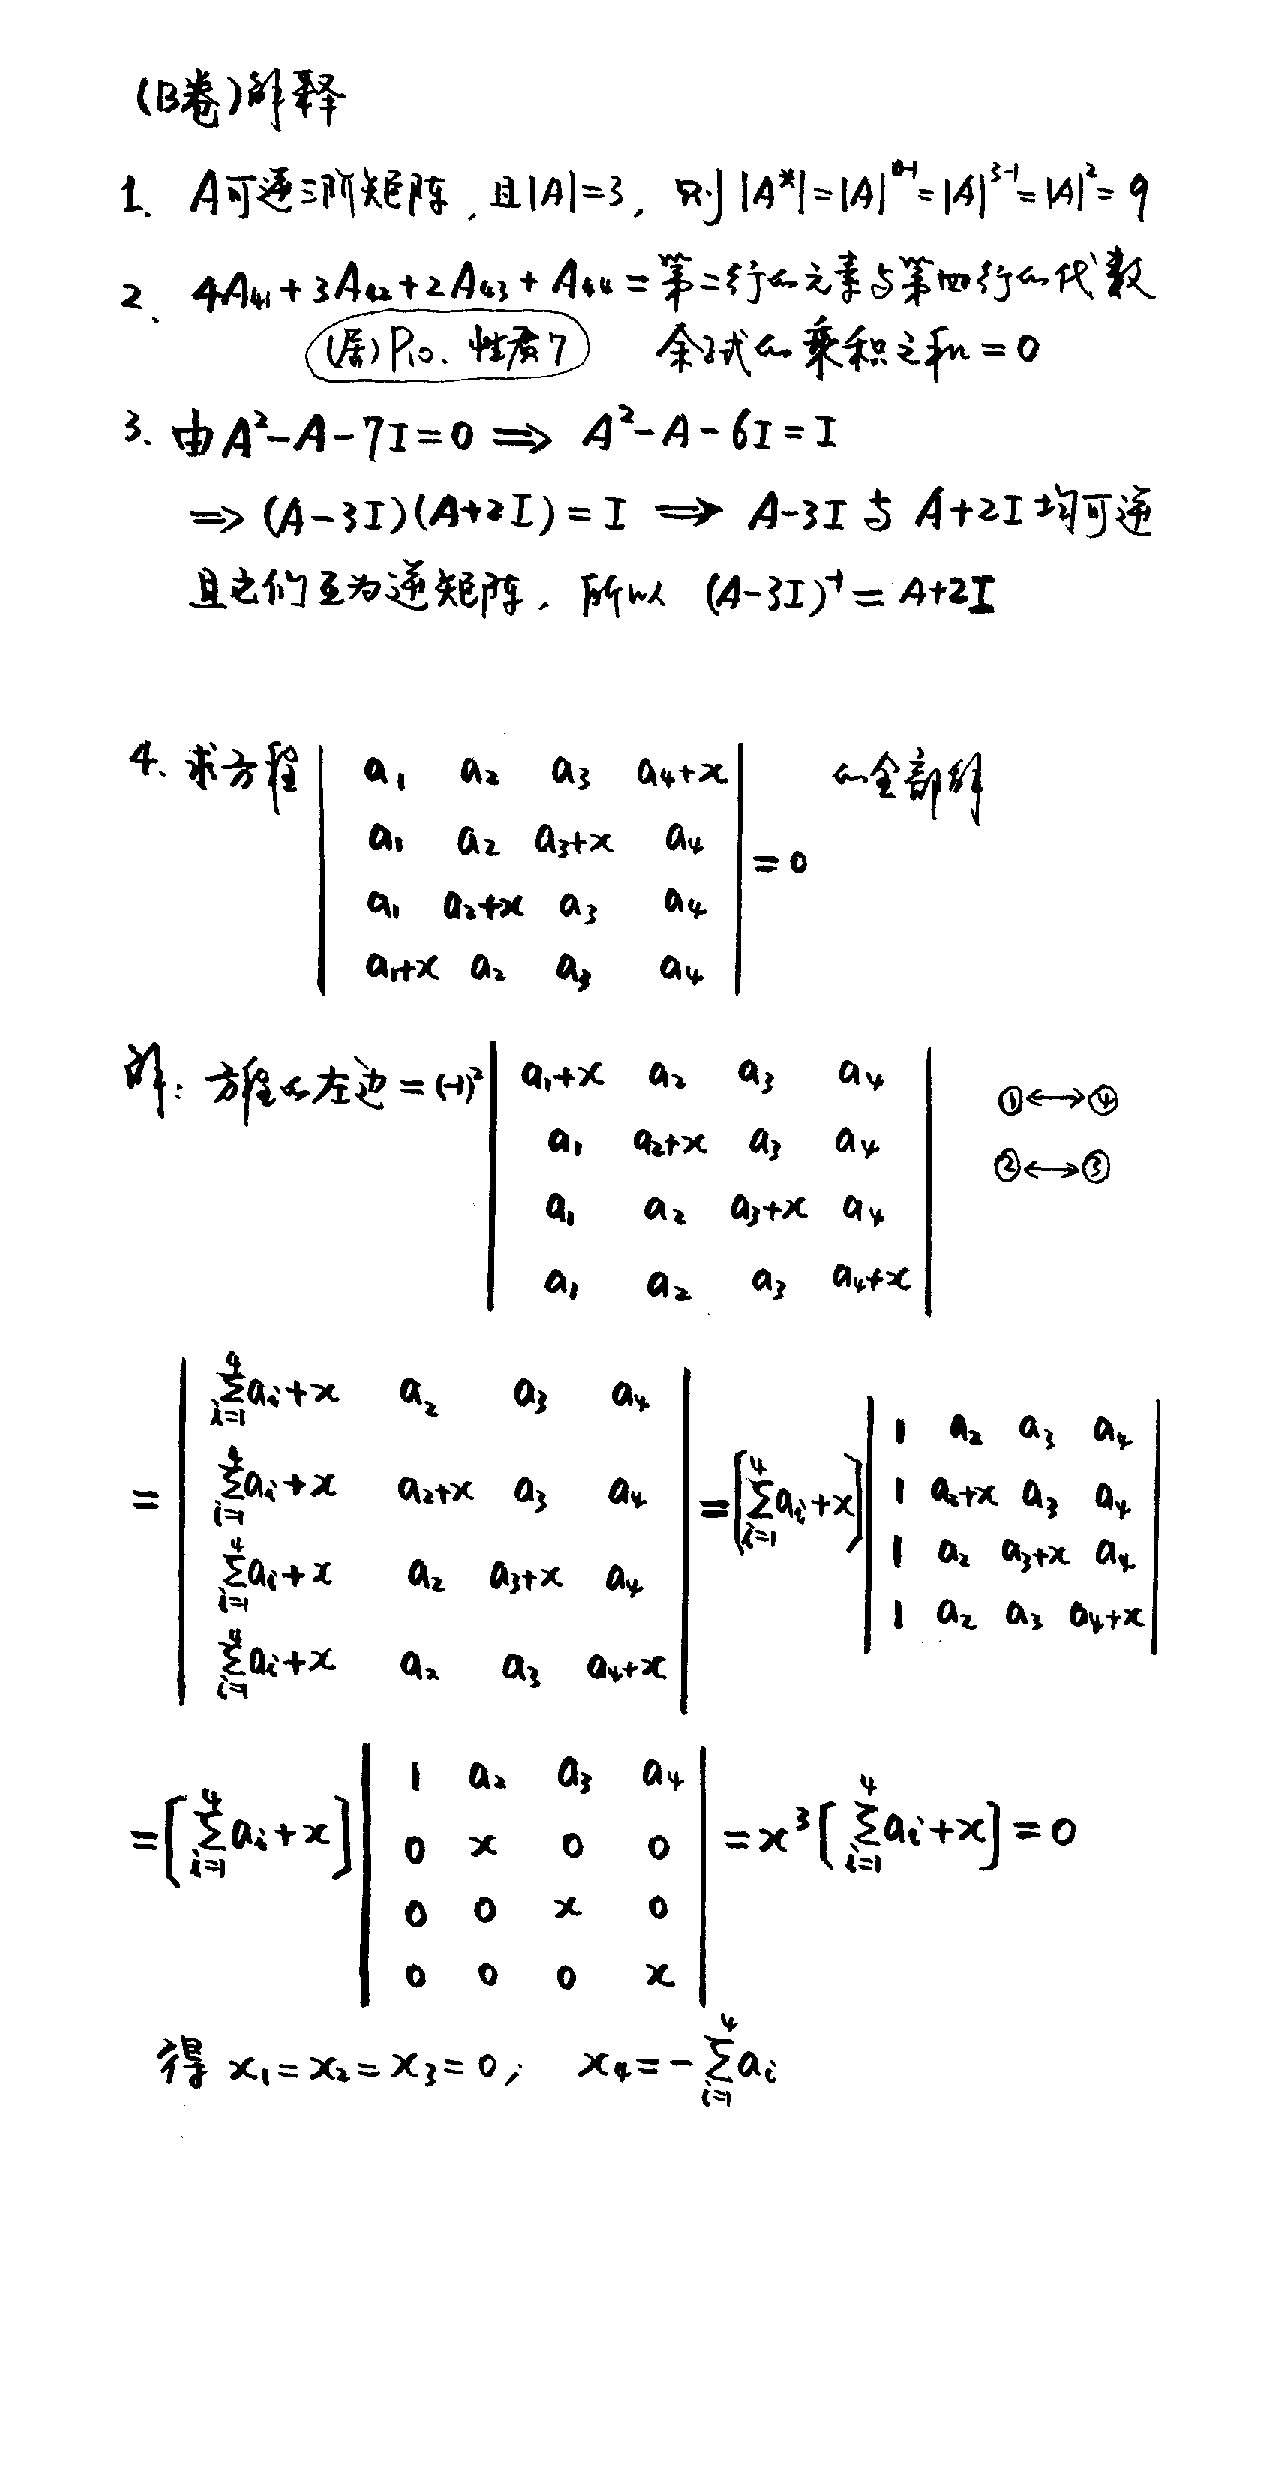 (B卷)解释
1. A可逆三阶矩阵, 且|A|=3, 则 |A*|=|A|^{n-1}=|A|^{3-1}=|A|^2=9
2、 4A₄₁+3A₄₂+2A₄₃+A₄₄=第二行的元素与第四行的代数
P₁₀、性质7 余子式的乘积之和=0
3. 由A²-A-7I=0 ⟹ A²-A-6I=I
⟹ (A-3I)(A+2I)=I ⟹ A-3I 与 A+2I 均可逆
且它们互为逆矩阵, 所以 (A-3I)⁻¹=A+2I
4、求方程 | a₁ a₂ a₃ a₄+x | 的全部解
| a₁ a₂ a₃+x a₄ | =0
| a₁ a₂+x a₃ a₄ |
| a₁+x a₂ a₃ a₄ |
解: 方程的左边=(-1)² | a₁+x a₂ a₃ a₄ | ①⟷④
| a₁ a₂+x a₃ a₄ | ②⟷③
| a₁ a₂ a₃+x a₄ |
| a₁ a₂ a₃ a₄+x |
= | \sum_{i=1}^{4}aᵢ+x a₂ a₃ a₄ | =[\sum_{i=1}^{4}aᵢ+x] | 1 a₂ a₃ a₄ |
| \sum_{i=1}^{4}aᵢ+x a₂+x a₃ a₄ | | 1 a₂+x a₃ a₄ |
| \sum_{i=1}^{4}aᵢ+x a₂ a₃+x a₄ | | 1 a₂ a₃+x a₄ |
| \sum_{i=1}^{4}aᵢ+x a₂ a₃ a₄+x | | 1 a₂ a₃ a₄+x |
=[\sum_{i=1}^{4}aᵢ+x] | 1 a₂ a₃ a₄ | =x³[\sum_{i=1}^{4}aᵢ+x]=0
| 0 x 0 0 |
| 0 0 x 0 |
| 0 0 0 x |
得 x₁=x₂=x₃=0; x₄=-\sum_{i=1}^{4}aᵢ